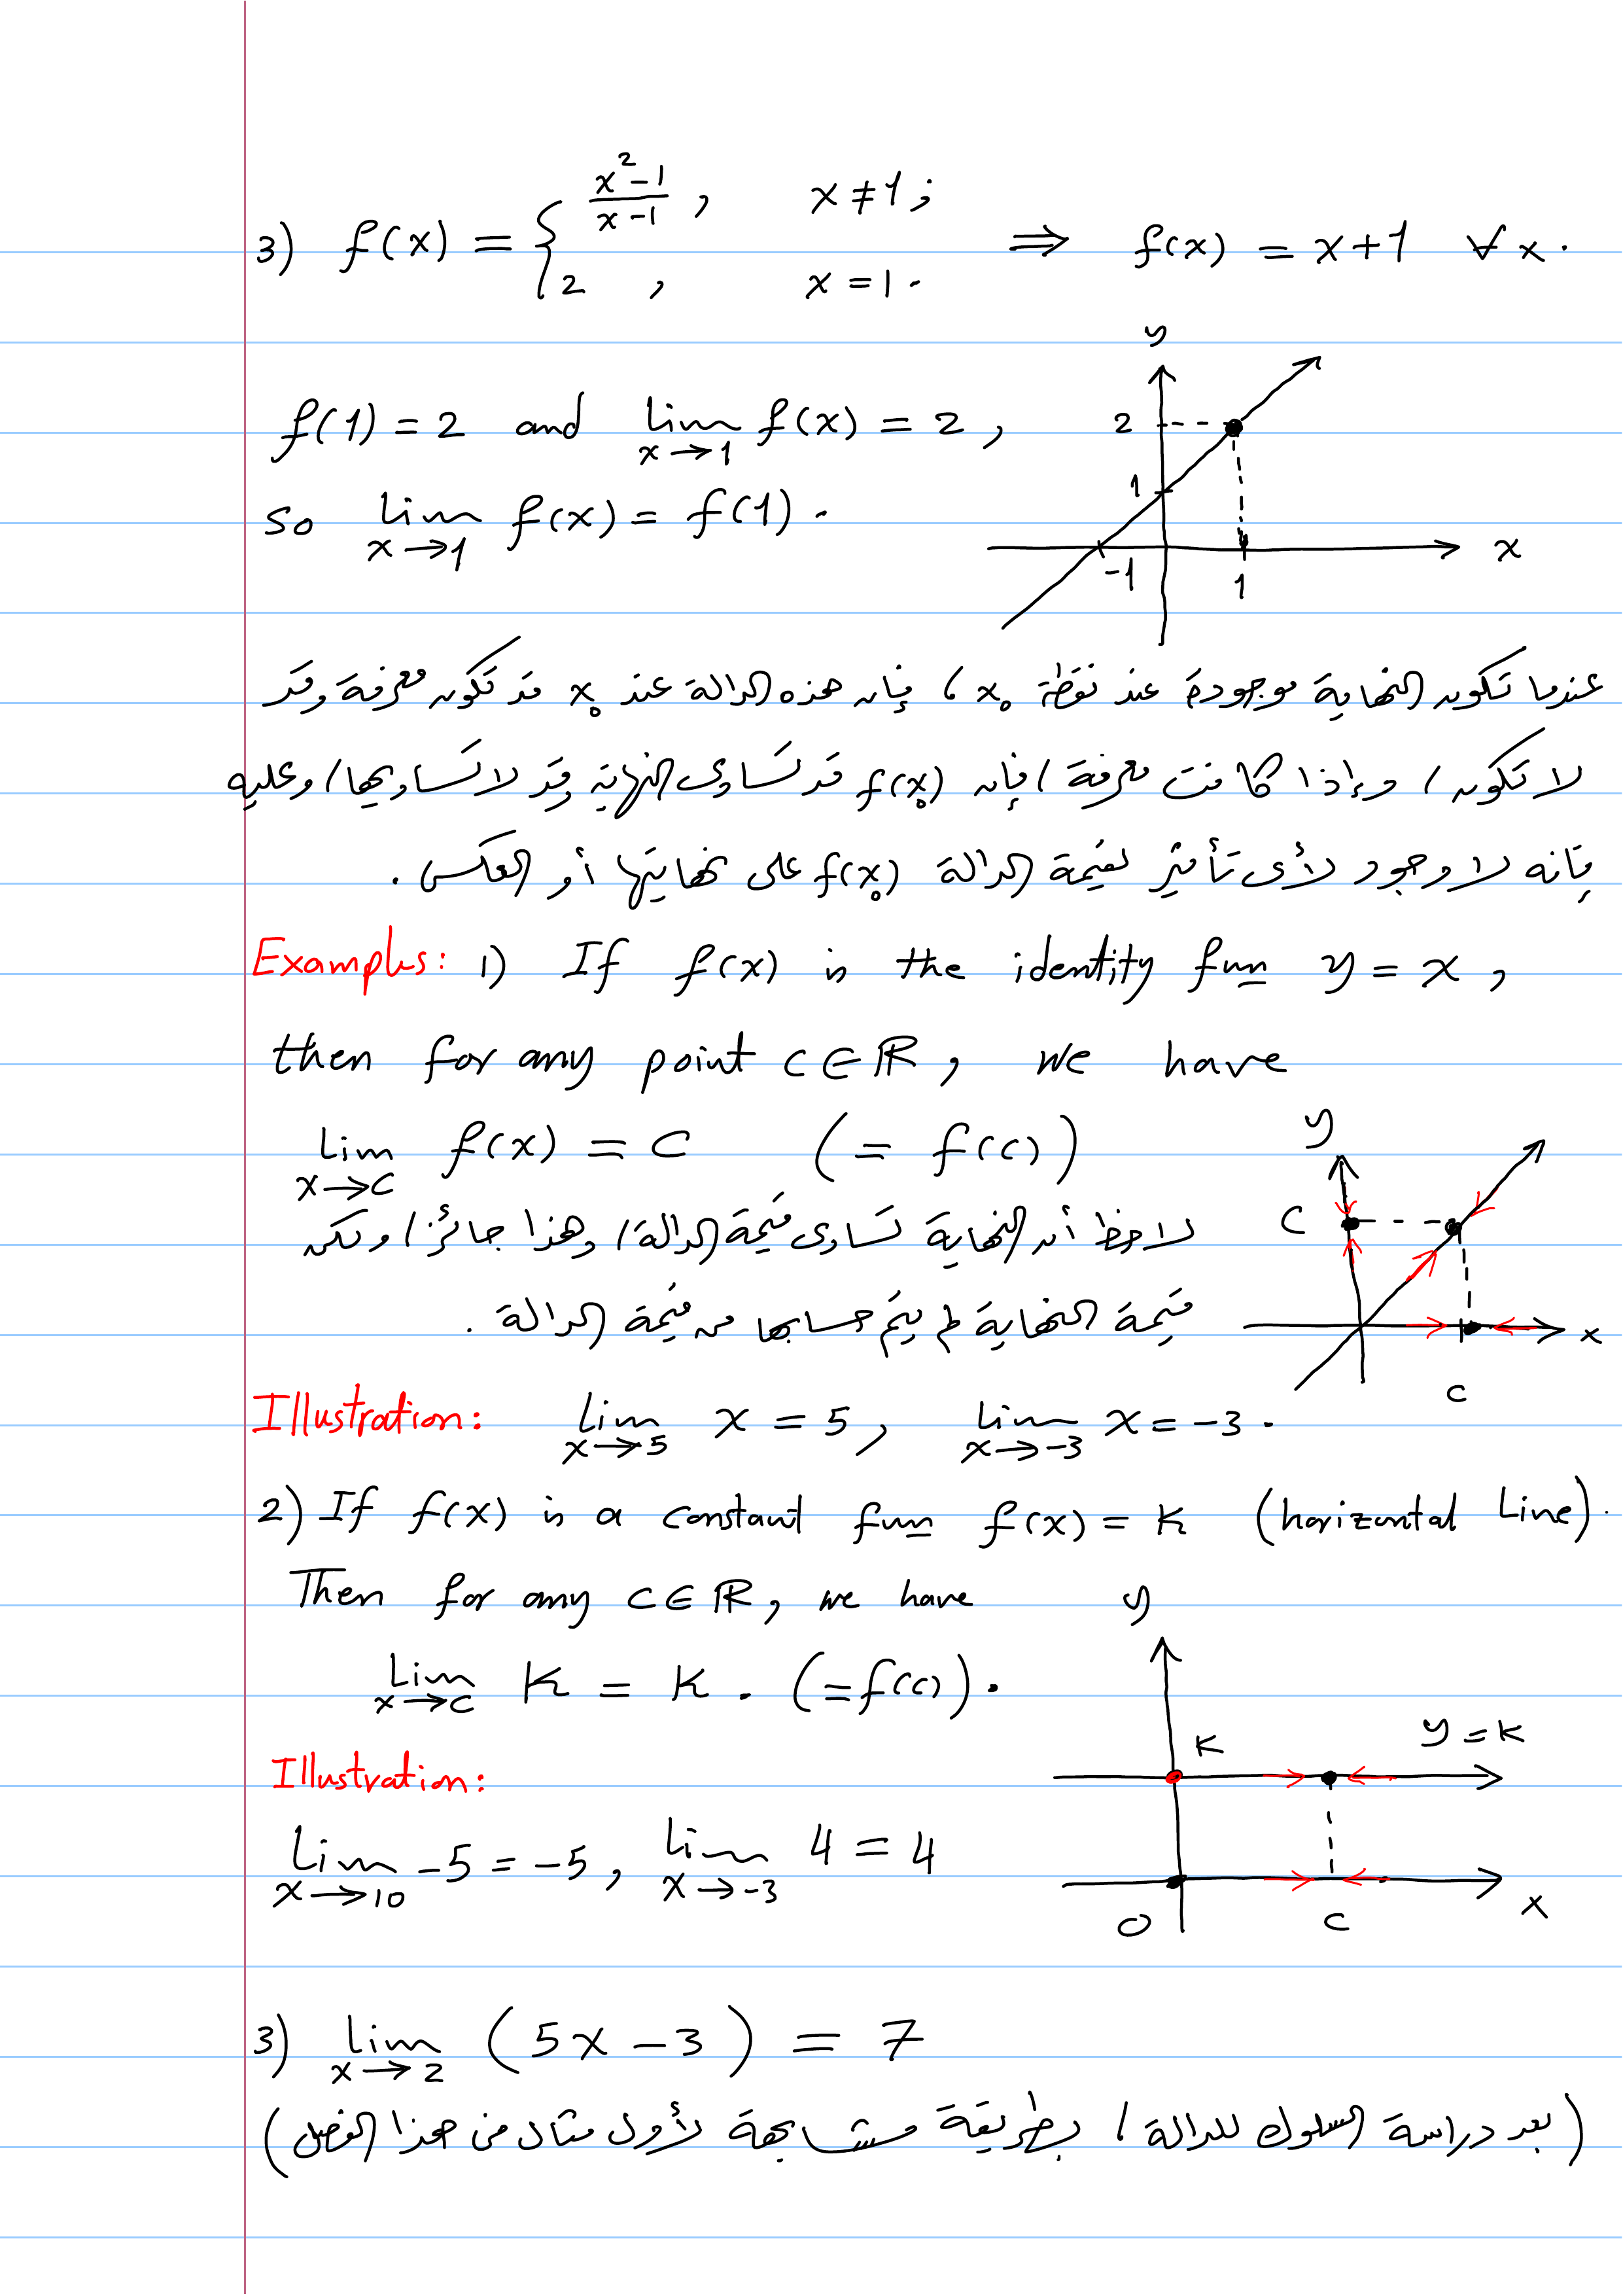 3) f(x) = { (x²-1)/(x-1) , x ≠ 1 ;
2 , x = 1 .
⟹ f(x) = x+1 ∀ x .
y
2
1
-1
1
x
f(1) = 2 and lim x→1 f(x) = 2 ,
so lim x→1 f(x) = f(1) .
عندما تكون النهاية موجودة عند نقطة x₀ ، فإن هذه الدالة عند x₀ قد تكون معرفة وقد
لا تكون ، وإذا كانت معرفة ، فإن f(x₀) قد تساوى النهاية وقد لا تساويها ، وعليه
فإنه لا وجود لأى تأثير لقيمة الدالة f(x₀) على نهايتها أو العكس .
Examples: 1) If f(x) is the identity fun y = x ,
then for any point c ∈ ℝ , we have
lim x→c f(x) = c (= f(c))
لاحظ أن النهاية تساوى قيمة الدالة ، وهذا جائز ، ولكن
قيمة النهاية لم يتم حسابها من قيمة الدالة .
y
c
x
c
Illustration: lim x→5 x = 5 , lim x→-3 x = -3 .
2) If f(x) is a constant fun f(x) = K (horizontal Line) .
Then for any c ∈ ℝ , we have
lim x→c K = K . (= f(c)) .
y
K
y = K
O
c
x
Illustration:
lim x→10 -5 = -5 , lim x→-3 4 = 4
3) lim x→2 (5x - 3) = 7
(بعد دراسة السلوك للدالة ، بطريقة مشابهة لأول مثال من هذا الفصل)